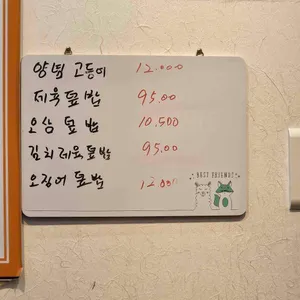 양념 고등어 12.000
제육 덮밥 95.00
오삼 덮밥 10.500
김치제육덮밥 95.00
오징어 덮밥 12000
BEST FRIENDS